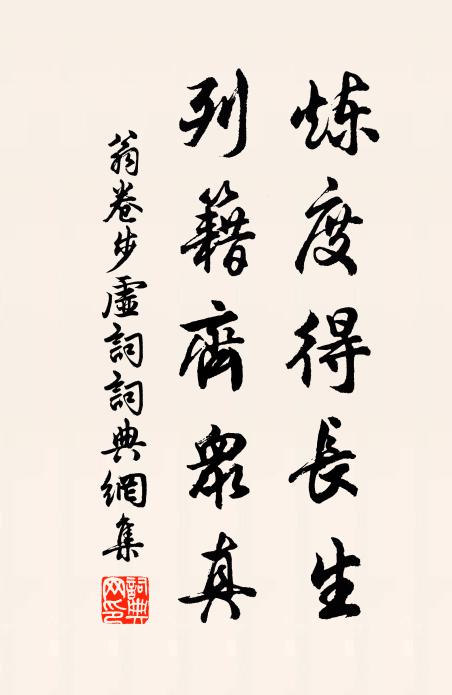 炼度得長生
列籍齊衆真
翁卷步虛詞詞典網集
詞典网印